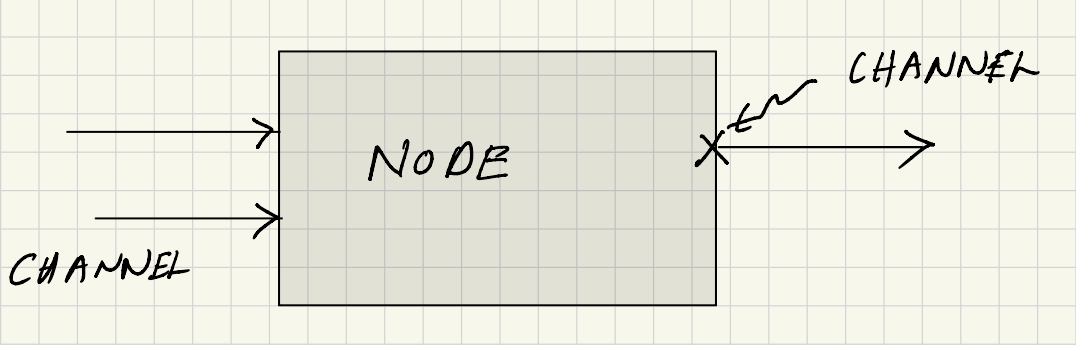 CHANNEL
NODE
CHANNEL